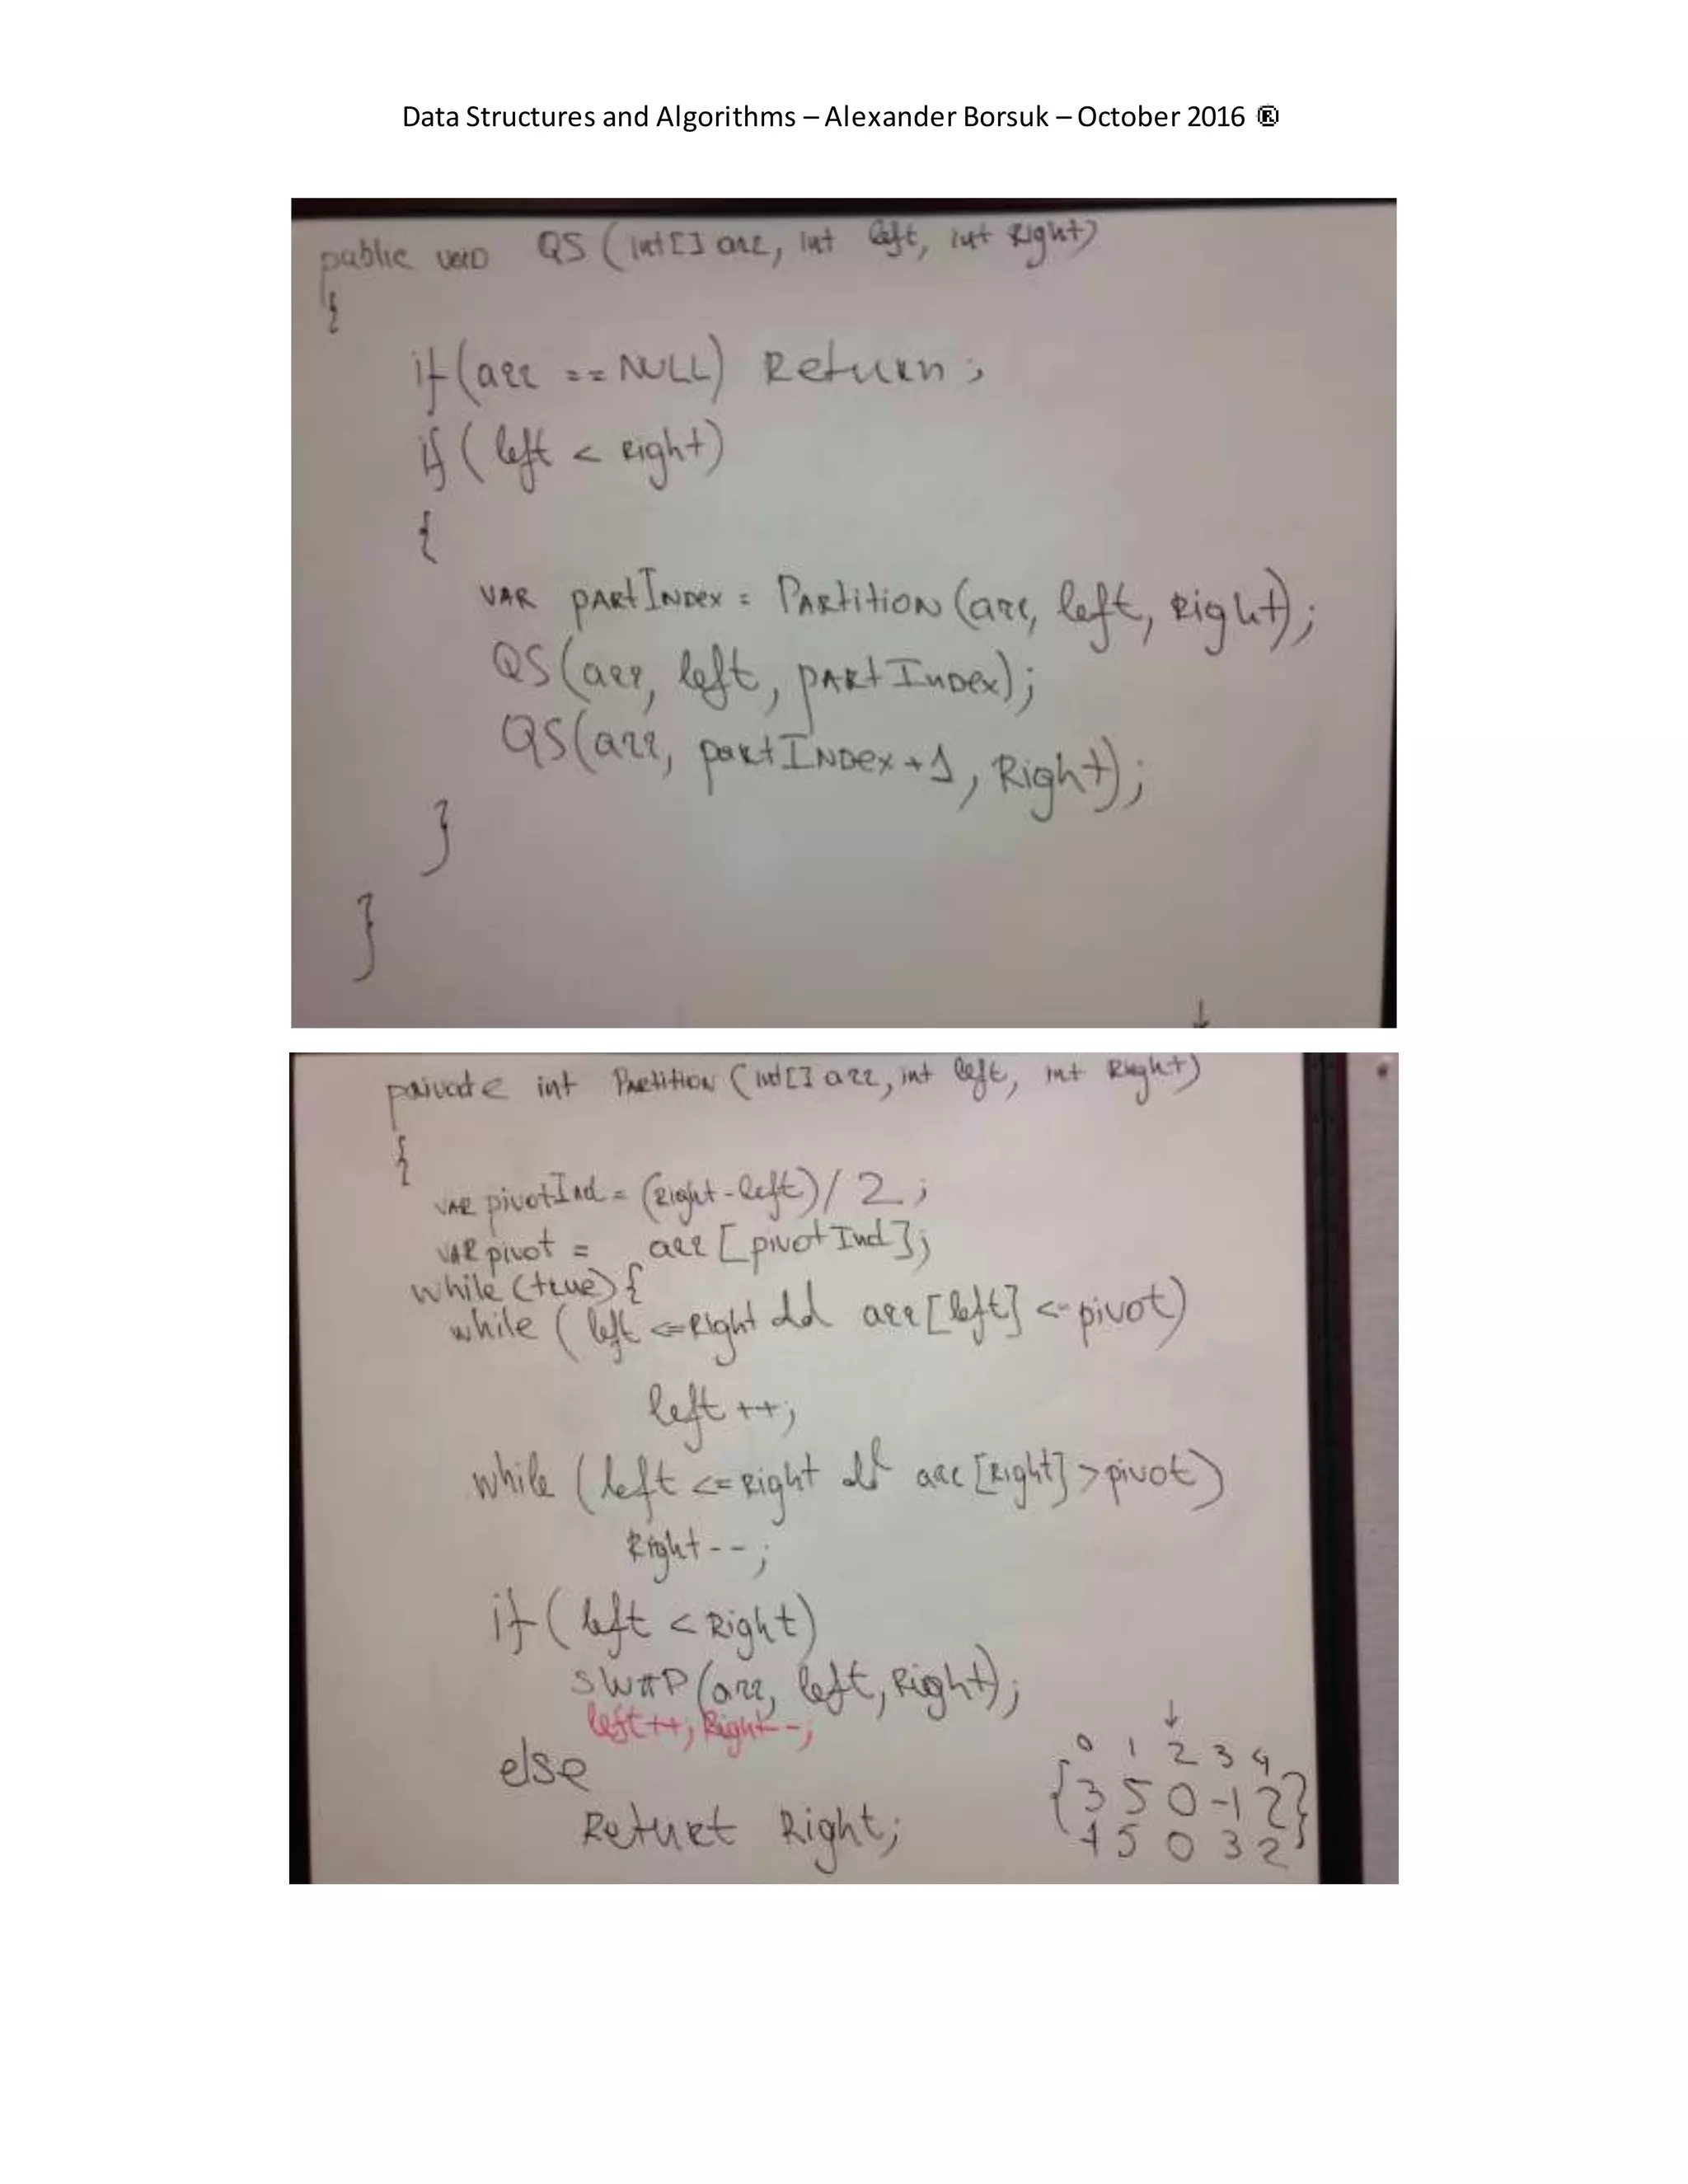 Data Structures and Algorithms – Alexander Borsuk – October 2016 ®
public void QS (int[] arr, int left, int Right)
{
if (arr == NULL) Return;
if (left < Right)
{
VAR partIndex = Partition (arr, left, Right);
QS(arr, left, partIndex);
QS(arr, partIndex+1, Right);
}
}
private int Partition (int[] arr, int left, int Right)
{
VAR pivotInd = (Right-left)/2;
VAR pivot = arr [pivotInd];
while (true) {
while (left <= Right && arr[left] < pivot)
left ++;
while (left <= Right && arr[Right] > pivot)
Right--;
if (left < Right)
SWAP (arr, left, Right);
left++; Right--;
else
Return Right;
0 1 2 3 4
{3 5 0 -1 2}
5 0 3 2